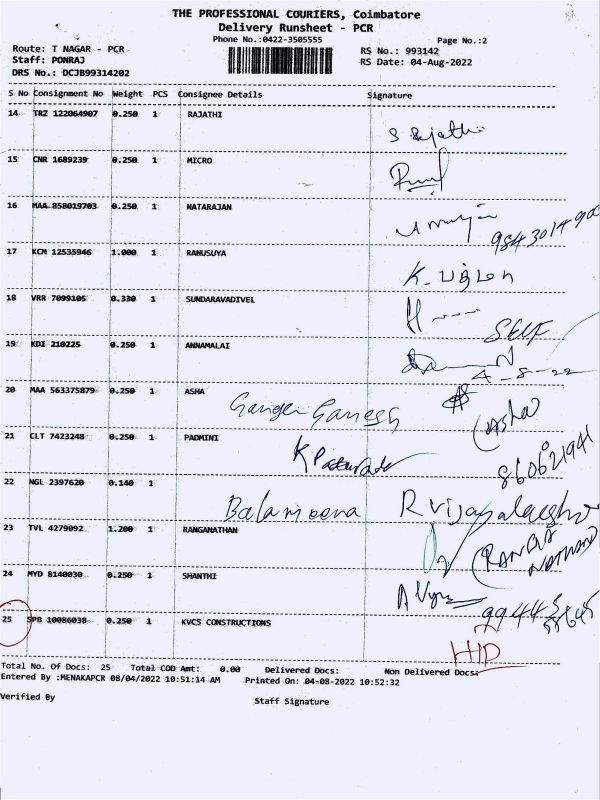 THE PROFESSIONAL COURIERS, Coimbatore
Delivery Runsheet - PCR
Phone No.:0422-3505555
Page No.:2
Route: T NAGAR - PCR
RS No.: 993142
Staff: PONRAJ
RS Date: 04-Aug-2022
DRS No.: DCJB99314202
S No Consignment No Weight PCS Consignee Details Signature
14 TRZ 122064907 0.250 1 RAJATHI
S Rajathi
15 CNR 1689239 0.250 1 MICRO
16 MAA 858019703 0.250 1 NATARAJAN
17 KCM 12535946 1.000 1 RANUSUYA
18 VRR 7099105 0.330 1 SUNDARAVADIVEL
SELF
19 KDI 210225 0.250 1 ANNAMALAI
4-8-22
20 MAA 563375879 0.250 1 ASHA
Ganesh
(Asha
21 CLT 7423248 0.250 1 PADMINI
22 NGL 2397620 0.140 1
Balameena
23 TVL 4279092 1.200 1 RANGANATHAN
24 MYD 8140030 0.250 1 SHANTHI
25 SPB 10086038 0.250 1 KVCS CONSTRUCTIONS
Total No. Of Docs: 25 Total COD Amt: 0.00 Delivered Docs: Non Delivered Docs:
Entered By :MENAKAPCR 08/04/2022 10:51:14 AM Printed On: 04-08-2022 10:52:32
Verified By
Staff Signature